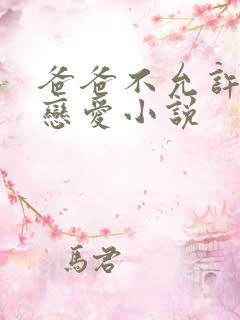 爸爸不允許
戀愛小説
馬君